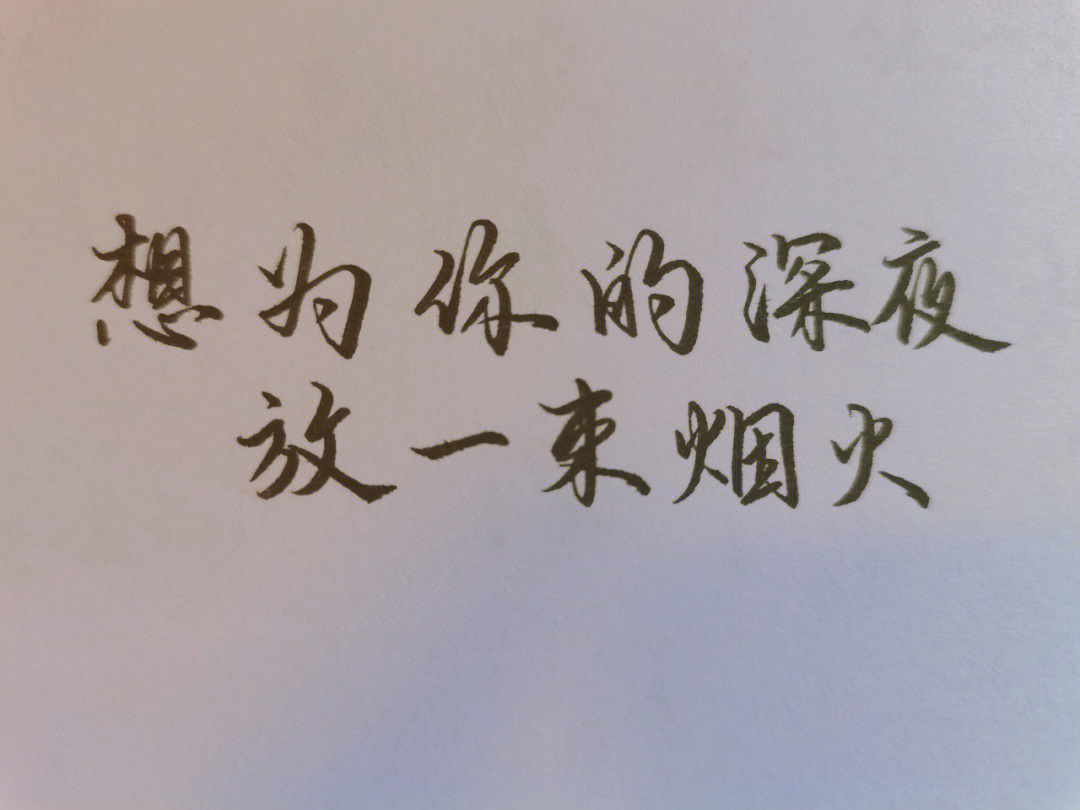 想为你的深夜
放一束烟火